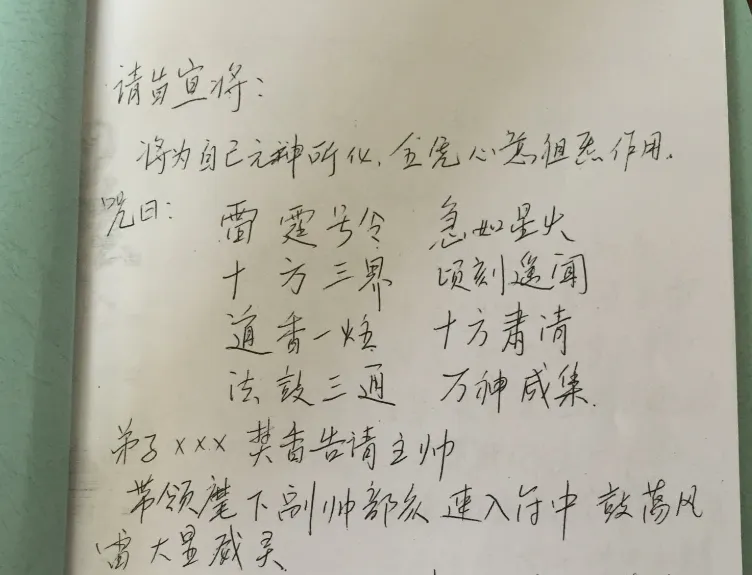 请旨宣将：
将为自己元神所化，全凭心意组炁作用.
咒曰： 雷霆号令 急如星火
十方三界 顷刻遥闻
道香一炷 十方肃清
法鼓三通 万神咸集.
弟子 ××× 焚香告请主帅
带领麾下副帅部众 速入符中 鼓荡风
雷大显威灵